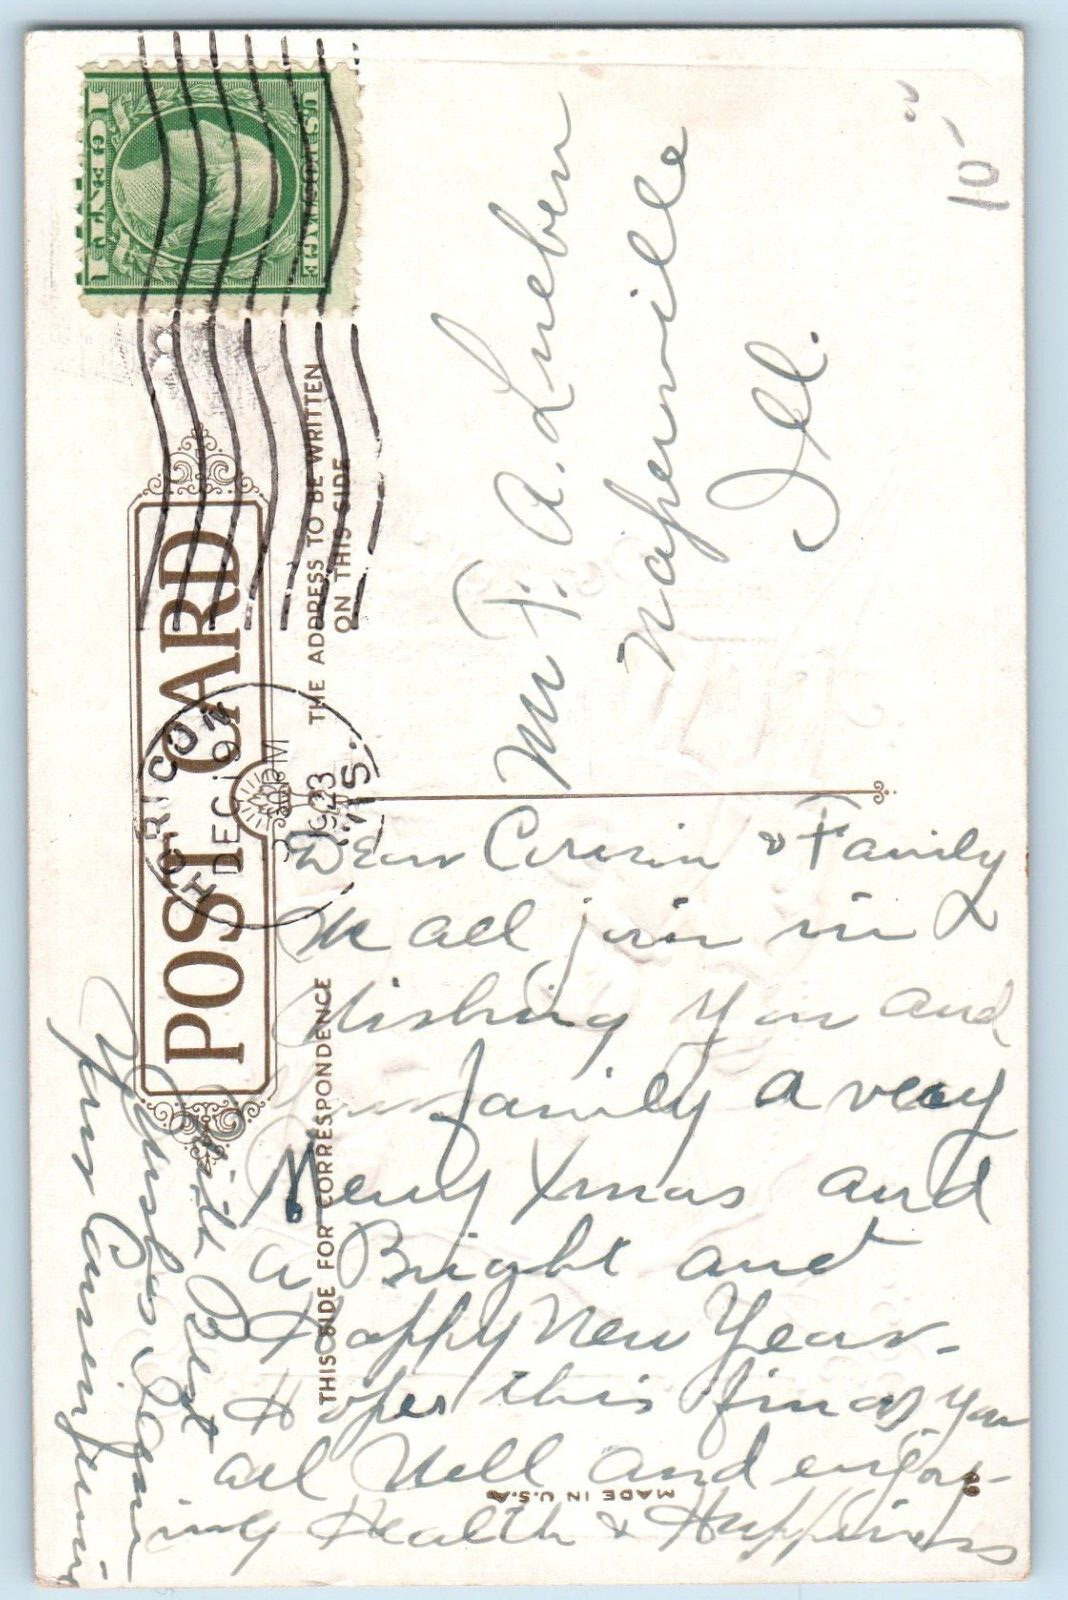 1 CENT 1
U.S. POSTAGE
HORICON
DEC 19
PM
1923
WIS.
POST CARD
THE ADDRESS TO BE WRITTEN
ON THIS SIDE
THIS SIDE FOR CORRESPONDENCE
10-
Mr F. A. Lueben
Naperville
Ill.
Dear Cousin & Family
We all join in
Wishing You and
family a very
Merry Xmas and
a Bright and
Happy New Year.
Hopes this finds you
all Well and enjoy-
ing Health & Happiness
With Best
Wishes I am
Your Cousin
MADE IN U.S.A.